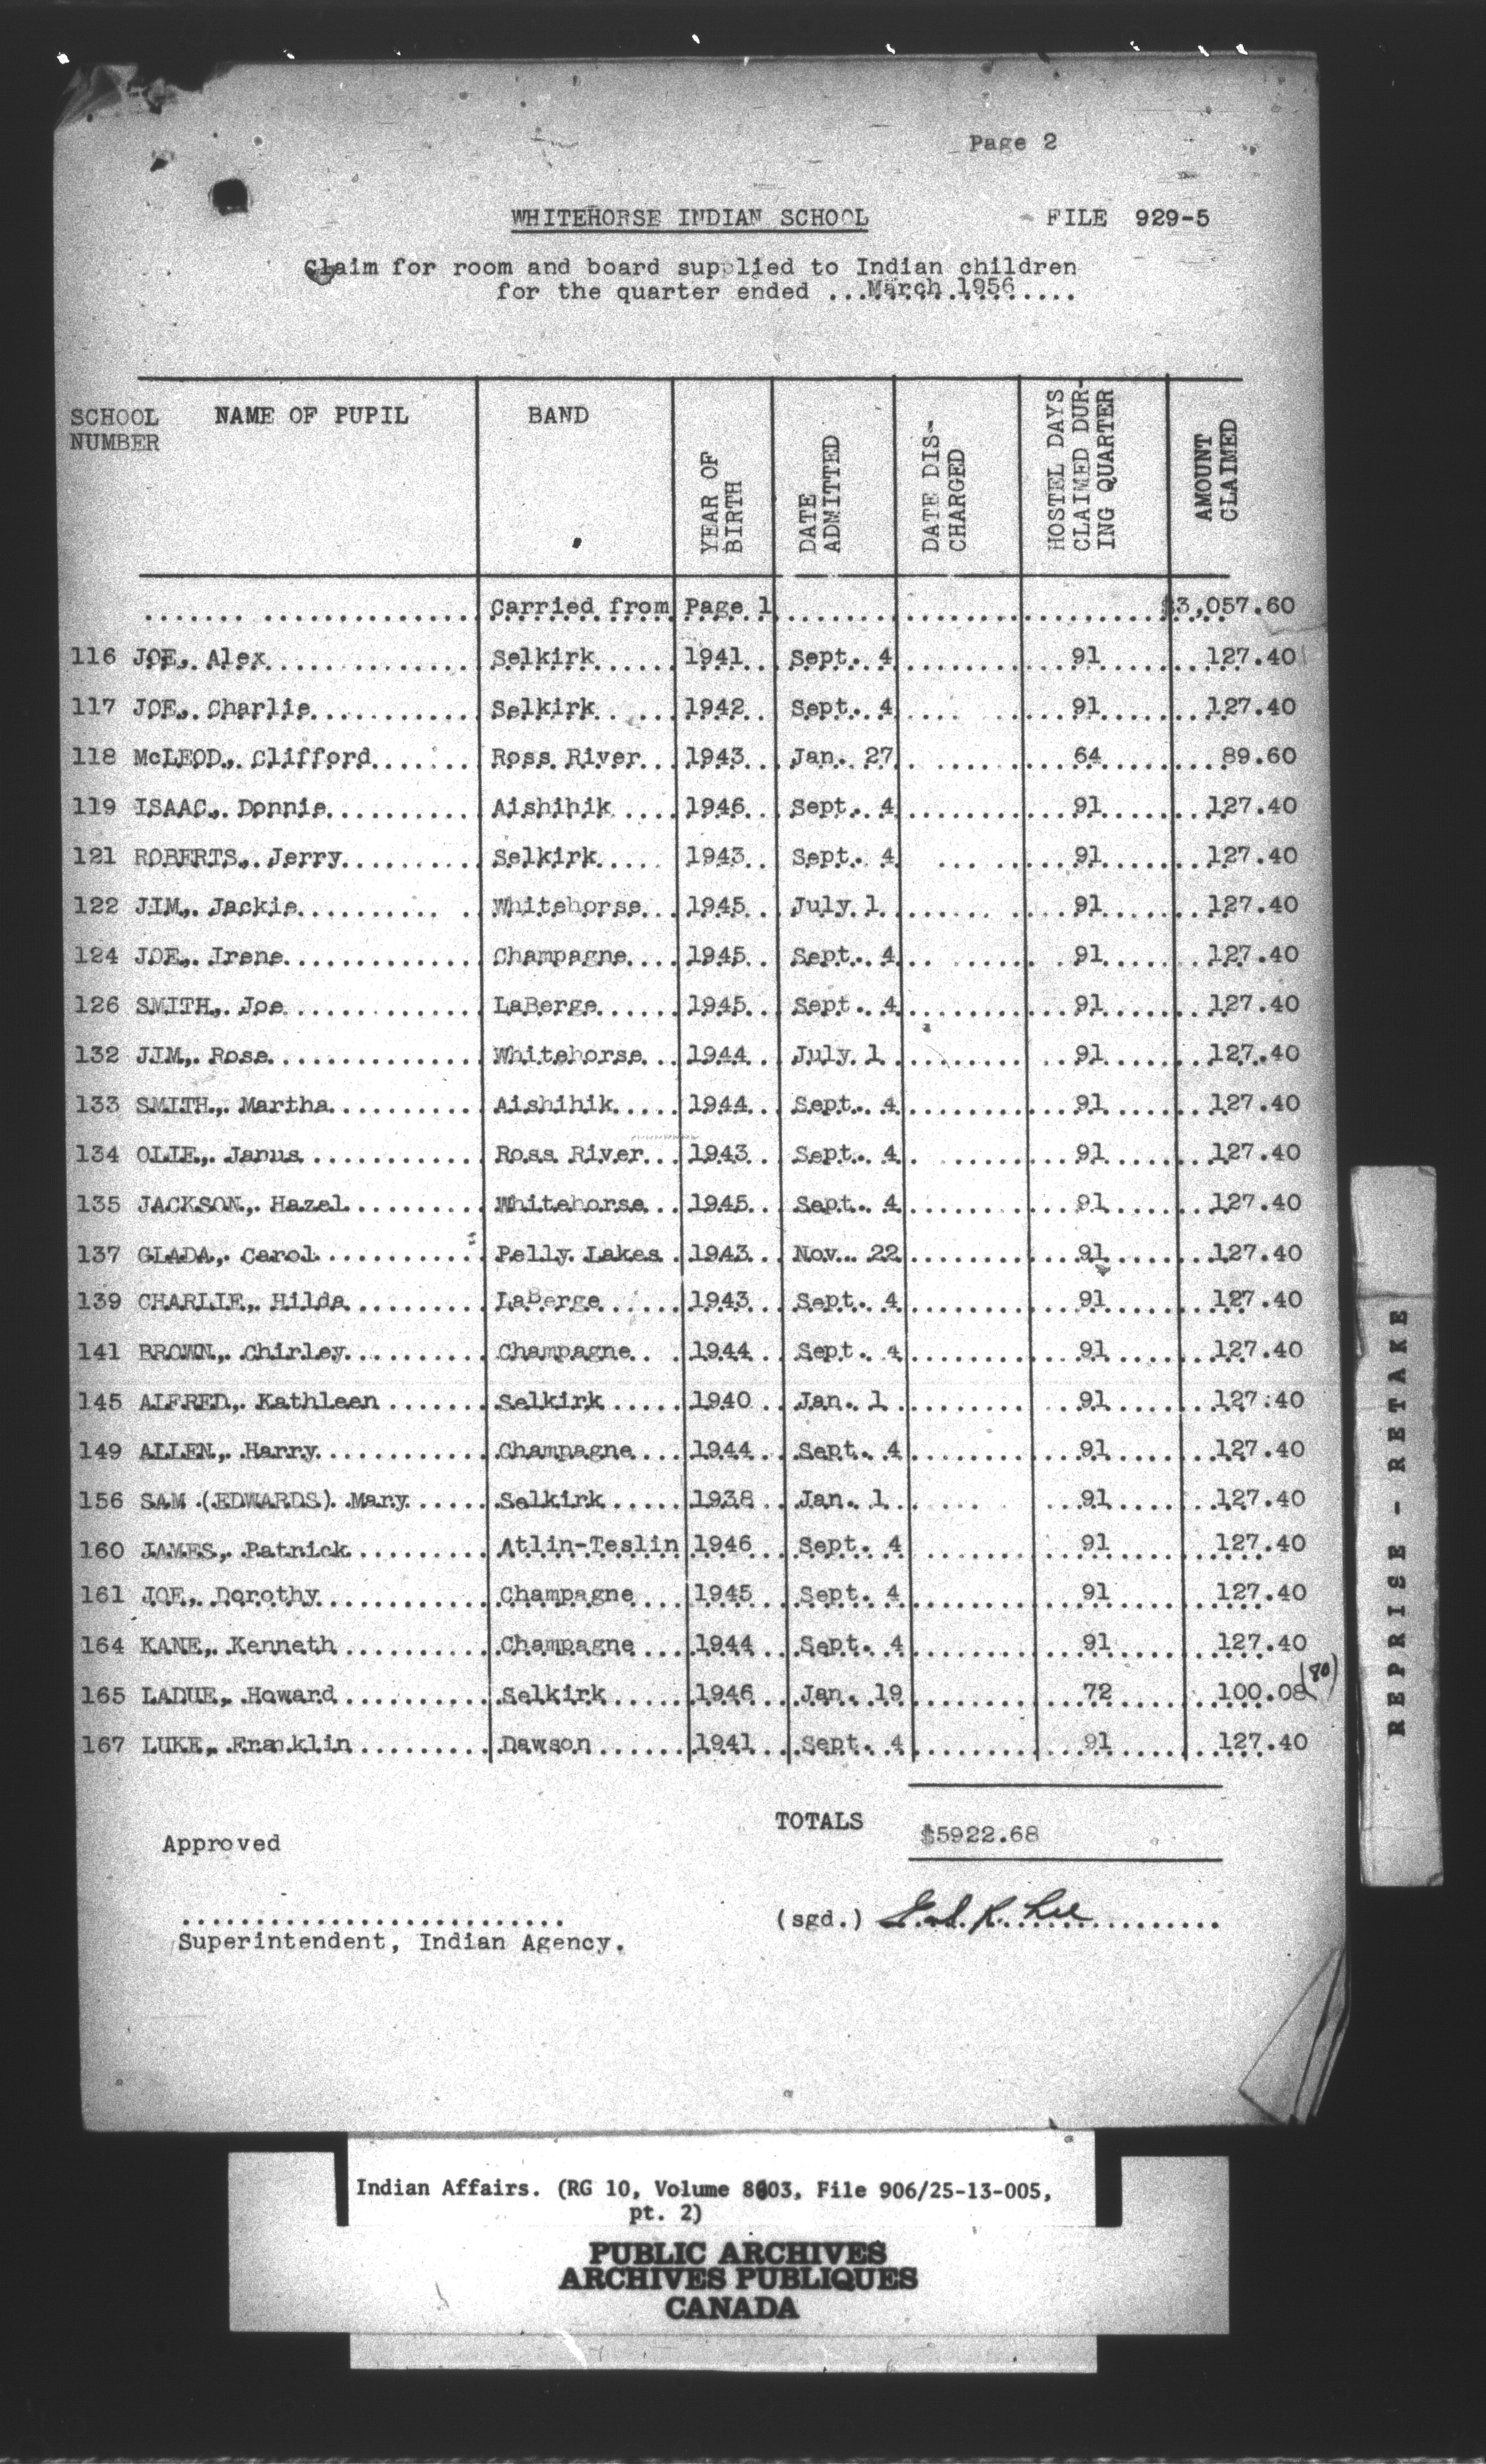 Page 2
WHITEHORSE INDIAN SCHOOL FILE 929-5
Claim for room and board supplied to Indian children
for the quarter ended ...March 1956....
SCHOOL NUMBER NAME OF PUPIL BAND YEAR OF BIRTH DATE ADMITTED DATE DIS-CHARGED HOSTEL DAYS CLAIMED DUR-ING QUARTER AMOUNT CLAIMED
Carried from Page 1 $3,057.60
116 JOE, Alex Selkirk 1941 Sept. 4 91 127.40
117 JOE, Charlie Selkirk 1942 Sept. 4 91 127.40
118 McLEOD, Clifford Ross River 1943 Jan. 27 64 89.60
119 ISAAC, Donnie Aishihik 1946 Sept. 4 91 127.40
121 ROBERTS, Jerry Selkirk 1943 Sept. 4 91 127.40
122 JIM, Jackie Whitehorse 1945 July 1 91 127.40
124 JOE, Irene Champagne 1945 Sept. 4 91 127.40
126 SMITH, Joe LaBerge 1945 Sept. 4 91 127.40
132 JIM, Rose Whitehorse 1944 July 1 91 127.40
133 SMITH, Martha Aishihik 1944 Sept. 4 91 127.40
134 OLIE, Janus Ross River 1943 Sept. 4 91 127.40
135 JACKSON, Hazel Whitehorse 1945 Sept. 4 91 127.40
137 GLADA, Carol Pelly Lakes 1943 Nov. 22 91 127.40
139 CHARLIE, Hilda LaBerge 1943 Sept. 4 91 127.40
141 BROWN, Chirley Champagne 1944 Sept. 4 91 127.40
145 ALFRED, Kathleen Selkirk 1940 Jan. 1 91 127.40
149 ALLEN, Harry Champagne 1944 Sept. 4 91 127.40
156 SAM (EDWARDS) Mary Selkirk 1938 Jan. 1 91 127.40
160 JAMES, Patrick Atlin-Teslin 1946 Sept. 4 91 127.40
161 JOE, Dorothy Champagne 1945 Sept. 4 91 127.40
164 KANE, Kenneth Champagne 1944 Sept. 4 91 127.40
165 LADUE, Howard Selkirk 1946 Jan. 19 72 100.08 (80)
167 LUKE, Franklin Dawson 1941 Sept. 4 91 127.40
TOTALS $5922.68
Approved
(sgd.) E. R. Lee
Superintendent, Indian Agency.
REPRISE - RETAKE
Indian Affairs. (RG 10, Volume 8603, File 906/25-13-005,
pt. 2)
PUBLIC ARCHIVES
ARCHIVES PUBLIQUES
CANADA